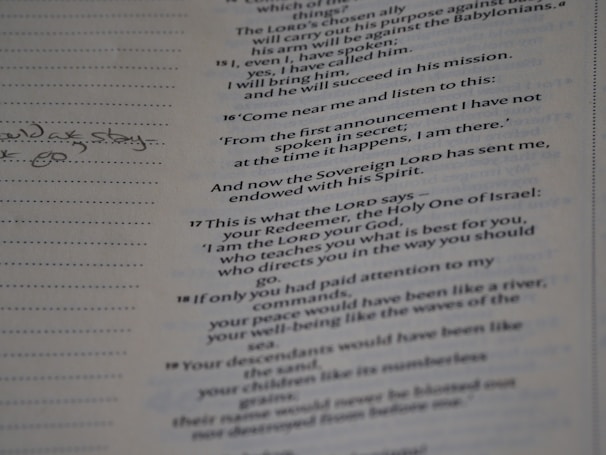 which of the
things?
The LORD's chosen ally
will carry out his purpose against
his arm will be against the Babylonians.a
15 I, even I, have spoken;
yes, I have called him.
I will bring him,
and he will succeed in his mission.
16 'Come near me and listen to this:
'From the first announcement I have not
spoken in secret;
at the time it happens, I am there.'
And now the Sovereign LORD has sent me,
endowed with his Spirit.
17 This is what the LORD says –
your Redeemer, the Holy One of Israel:
'I am the LORD your God,
who teaches you what is best for you,
who directs you in the way you should
go.
18 If only you had paid attention to my
commands,
your peace would have been like a river,
your well-being like the waves of the
sea.
19 Your descendants would have been like
the sand,
your children like its numberless
grains;
their name would never be blotted out
nor destroyed from before me.'
go